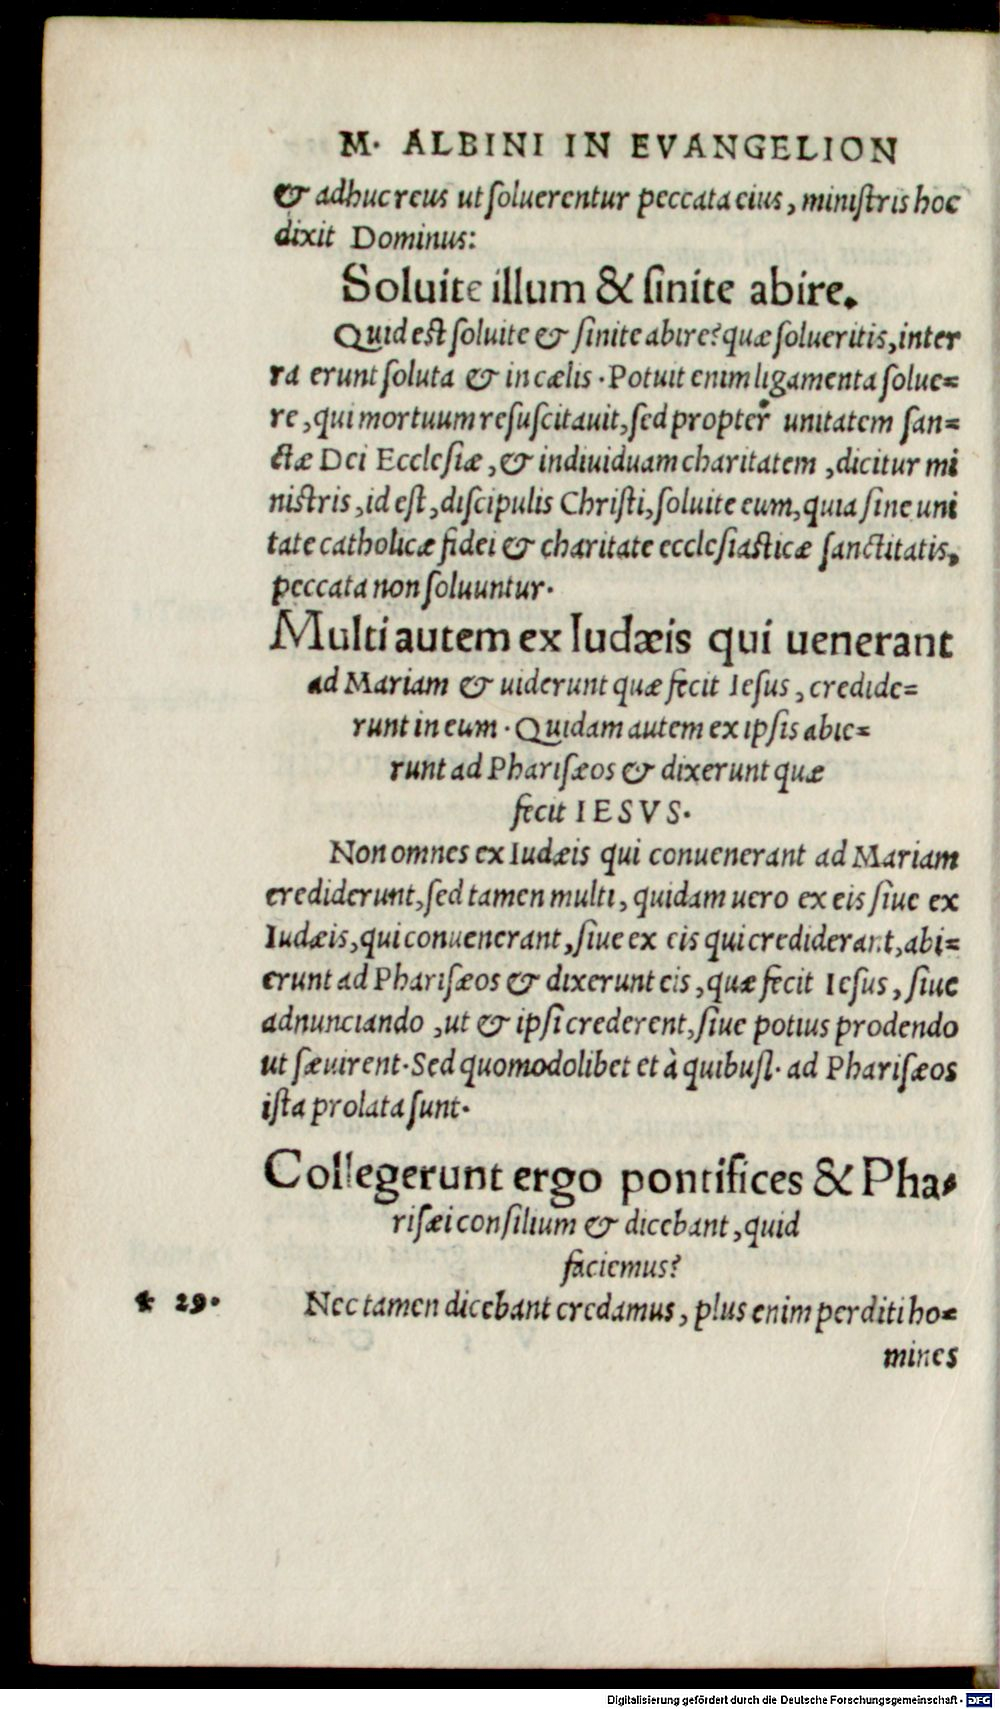 M. ALBINI IN EVANGELION
& adhuc reus ut ſoluerentur peccata eius, miniſtris hoc
dixit Dominus:
Soluite illum & ſinite abire.
Quid eſt ſoluite & ſinite abire? quæ ſolueritis, inter
ra erunt ſoluta & in cælis. Potuit enim ligamenta ſolue=
re, qui mortuum reſuſcitauit, ſed propter unitatem ſan=
ctæ Dei Eccleſiæ, & indiuiduam charitatem, dicitur mi
niſtris, id eſt, diſcipulis Chriſti, ſoluite eum, quia ſine uni
tate catholicæ fidei & charitate eccleſiaſticæ ſanctitatis,
peccata non ſoluuntur.
Multi autem ex Iudæis qui uenerant
ad Mariam & uiderunt quæ fecit Ieſus, credide=
runt in eum. Quidam autem ex ipſis abie=
runt ad Phariſæos & dixerunt quæ
fecit IESVS.
Non omnes ex Iudæis qui conuenerant ad Mariam
crediderunt, ſed tamen multi, quidam uero ex eis ſiue ex
Iudæis, qui conuenerant, ſiue ex eis qui crediderant, abi=
erunt ad Phariſæos & dixerunt eis, quæ fecit Ieſus, ſiue
adnunciando, ut & ipſi crederent, ſiue potius prodendo
ut ſæuirent. Sed quomodolibet et à quibuſl. ad Phariſæos
iſta prolata ſunt.
Collegerunt ergo pontifices & Pha-
riſæi conſilium & dicebant, quid
faciemus?
* 29. Nec tamen dicebant credamus, plus enim perditi ho=
mines
Digitalisierung gefördert durch die Deutsche Forschungsgemeinschaft - DFG